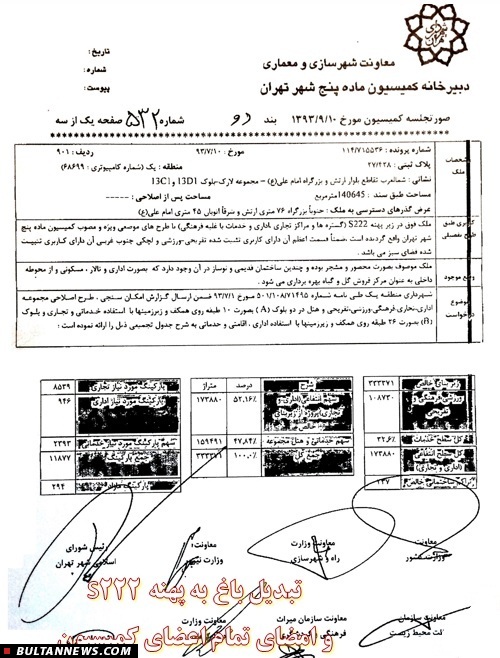 معاونت شهرسازی و معماری
دبیرخانه کمیسیون ماده پنج شهر تهران
تاریخ:
شماره:
پیوست:
صورتجلسه کمیسیون مورخ ۱۳۹۳/۹/۱۰ بند دو شماره ۵۳۲ صفحه یک از سه
مشخصات ملک
شماره پرونده : ۱۱۴/۷۱۵۵۳۶ مورخ : ۹۳/۷/۱۰ ردیف : ۹۰۱
پلاک ثبتی : ۲۷/۴۳۸ منطقه : یک (شماره کامپیوتری : ۶۸۶۹۹)
نشانی : شمالغرب تقاطع بلوار ارتش و بزرگراه امام علی(ع) – مجموعه لارک-بلوک 13D1 و 13C1
مساحت طبق سند : 140645مترمربع مساحت پس از اصلاحی : -----
عرض گذرهای دسترسی به ملک : جنوباً بزرگراه ۷۶ متری ارتش و شرقاً اتوبان ۴۵ متری امام علی(ع)
کاربری طبق طرح تفصیلی
ملک فوق در زیر پهنه S222 (گستره ها و مراکز تجاری، اداری و خدمات با غلبه فرهنگی) با طرح های موضعی ویژه و مصوب کمیسیون ماده پنج
شهر تهران واقع گردیده است ،ضمناً قسمت اعظم آن دارای کاربری تثبیت شده تفریحی-ورزشی و لچکی جنوب غربی آن دارای کاربری تثبیت
شده فضای سبز می باشد .
وضع موجود
ملک موصوف بصورت محصور و مشجر بوده و چندین ساختمان قدیمی و نوساز در آن وجود دارد که بصورت اداری و تالار ، مسکونی و از محوطه
داخلی به عنوان مرکز فروش گل و گیاه بهره برداری می شود .
موضوع درخواست
شهرداری منطقه یک طی نامه شماره ۵۰۱/۱۰۸/۷۱۴۹۵ مورخ ۹۳/۷/۱ ضمن ارسال گزارش امکان سنجی ، طرح اصلاحی مجموعه
اداری،تجاری فرهنگی،ورزشی،تفریحی و هتل در دو بلوک (A) بصورت ۱۰ طبقه روی همکف و زیرزمینها با استفاده خدماتی و تجاری و بلوک
(B) بصورت ۲۶ طبقه روی همکف و زیرزمینها با استفاده اداری ، اقامتی و خدماتی به شرح جدول تجمیعی ذیل را ارائه نموده است :
زیربنای خالص ۳۳۳۳۷۱
ورزشی فرهنگی و تفریحی ۱۰۸۷۳۰
کل سطح خدمات ۳۲.۶٪
کل سطح انتفاعی (اداری و تجاری) ۱۷۳۸۸۰
تراکم ساختمانی خالص ۲۳۷٪
شرح درصد متراژ
۵۲.۱۶٪ ۱۷۳۸۸۰
سهم خدماتی و هتل مجموعه ۴۷.۸۴٪ ۱۵۹۴۹۱
جمع کل ۱۰۰.۰٪ ۳۳۳۳۷۱
پارکینگ مورد نیاز تجاری ۸۵۳۹
پارکینگ مورد نیاز اداری ۹۴۶
سهم پارکینگ مورد نیاز خدماتی ۲۳۹۲
جمع کل پارکینگ ۱۱۸۷۷
۲۹۴
معاونت
معاونت وزارت
راه و شهرسازی
معاونت
وزارت
رئیس شورای
اسلامی شهر تهران
تبدیل باغ به پهنه S۲۲۲
و امضای تمام اعضای کمیسیون
معاونت سازمان
محیط زیست
معاونت سازمان میراث
فرهنگی
BULTANNEWS.COM